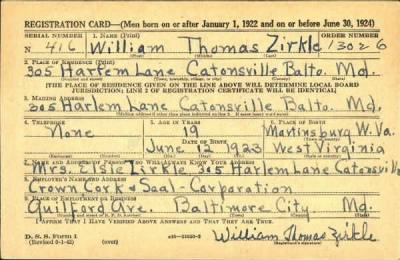 REGISTRATION CARD—(Men born on or after January 1, 1922 and on or before June 30, 1924)
SERIAL NUMBER 1. NAME (Print) ORDER NUMBER
N 416 William Thomas Zirkle 13026
(First) (Middle) (Last)
2. PLACE OF RESIDENCE (Print)
305 Harlem Lane Catonsville Balto. Md.
(Number and street) (Town, township, village, or city) (County) (State)
[THE PLACE OF RESIDENCE GIVEN ON THE LINE ABOVE WILL DETERMINE LOCAL BOARD
JURISDICTION; LINE 2 OF REGISTRATION CERTIFICATE WILL BE IDENTICAL]
3. MAILING ADDRESS
305 Harlem Lane Catonsville Balto. Md.
4. TELEPHONE 5. AGE IN YEARS
None 19 Martinsburg W. Va.
DATE OF BIRTH
June 12 1923 West Virginia
7. NAME AND ADDRESS OF PERSON WHO WILL ALWAYS KNOW YOUR ADDRESS
Mrs. Elsie Zirkle 305 Harlem Lane Catonsville
8. EMPLOYER'S NAME AND ADDRESS
Crown Cork & Seal-Corporation
9. PLACE OF EMPLOYMENT OR BUSINESS
Guilford Ave. Baltimore City Md.
I AFFIRM THAT I HAVE VERIFIED ABOVE ANSWERS AND THAT THEY ARE TRUE.
D. S. S. Form 1
(Revised 6-1-42) (over)
William Thomas Zirkle